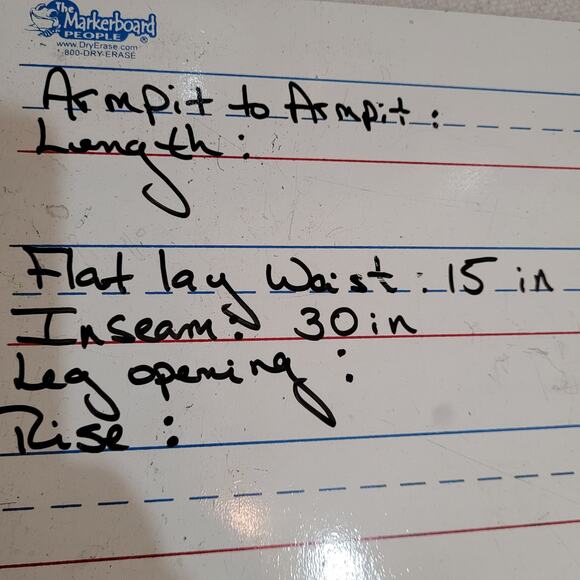 The
Markerboard
PEOPLE
www.DryErase.com
800-DRY-ERASE
Armpit to Armpit:
Length:
Flat lay Waist: 15 in
Inseam: 30 in
Leg opening:
Rise: